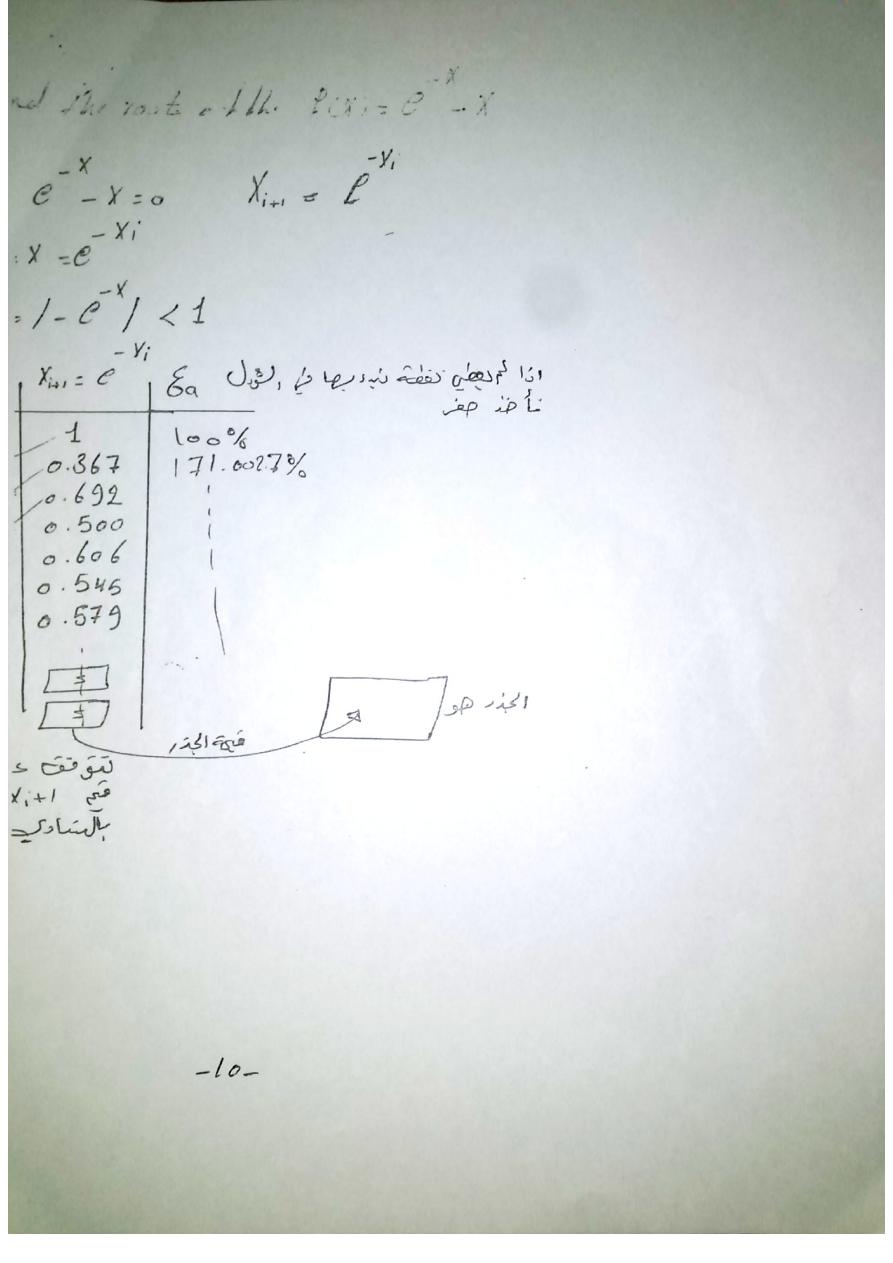 the root of the f(x) = e^-x - x
e^-x - x = 0 x_i+1 = e^-x_i
x = e^-x_i
= |-e^-x| < 1
اذا لم يعطي نقطة نبدء بها في السؤال
نأخذ صفر
x_i+1 = e^-x_i εa
1 100%
0.367 171.0027%
0.692
0.500
0.606
0.545
0.579
الجذر هو
قيمة الجذر
تتوقف
قيم x_i+1
بالتساوي
-10-